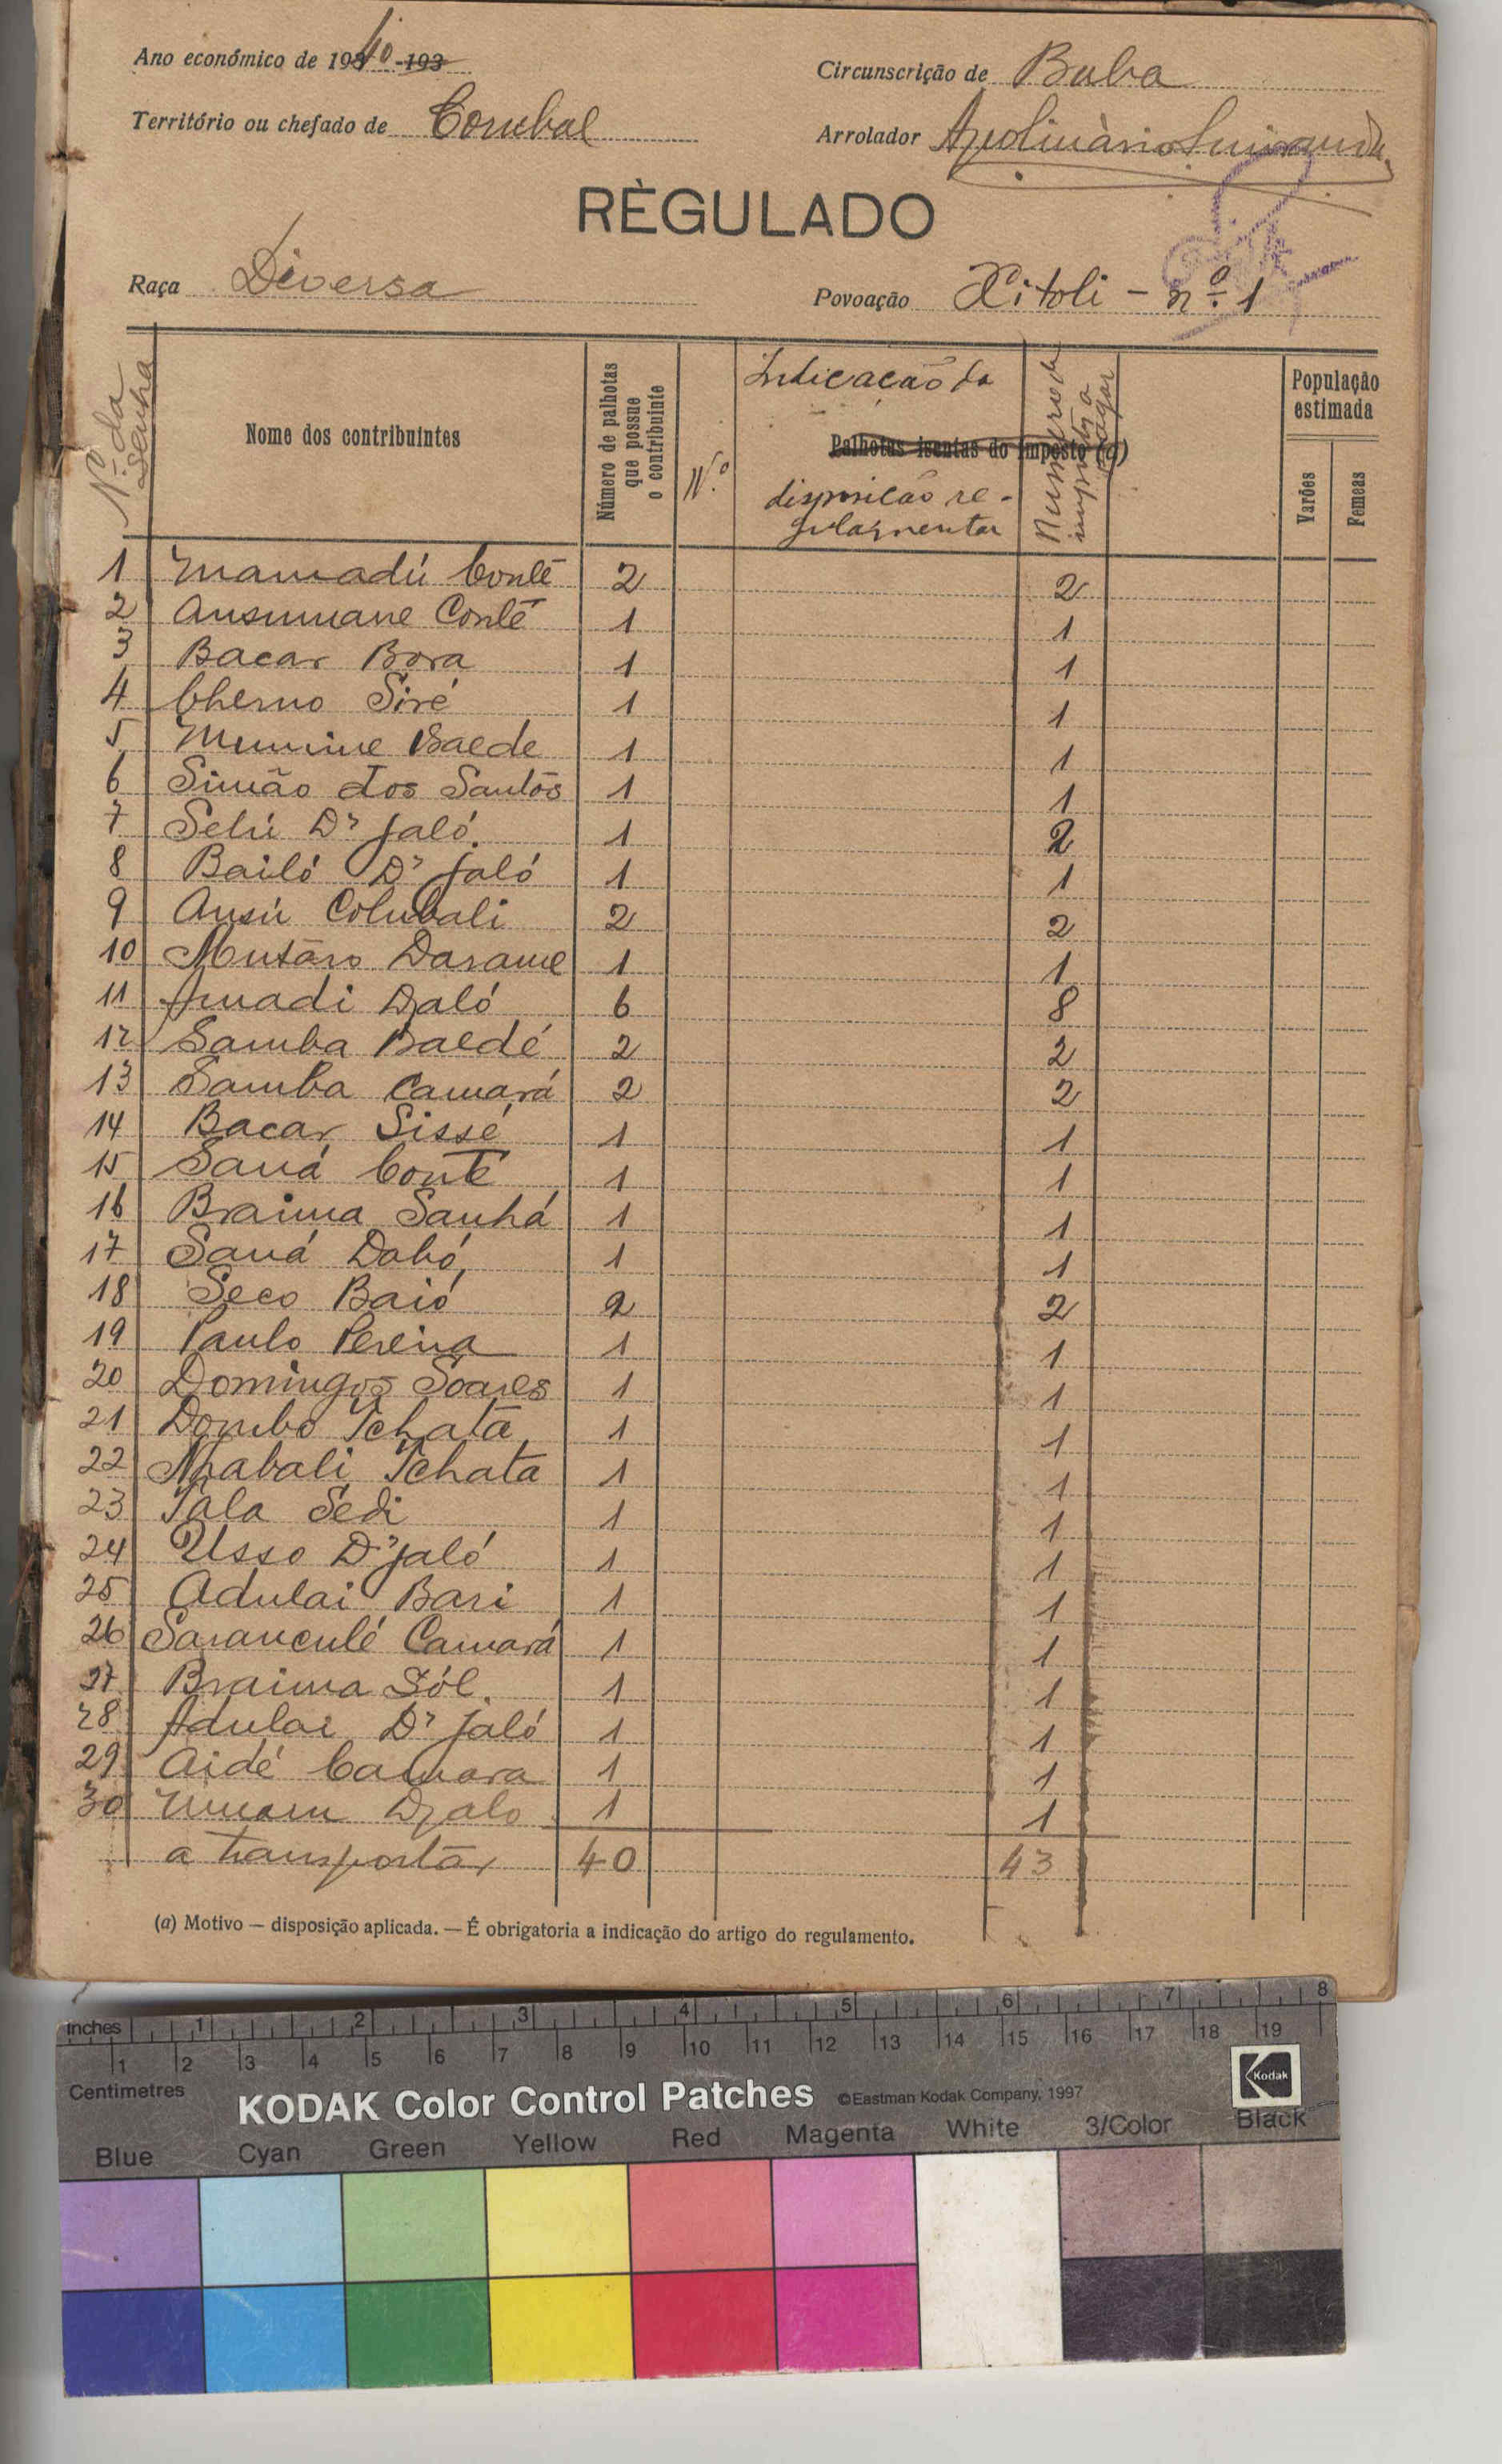 Ano económico de 1940 -193
Circunscrição de Buba
Território ou chefado de Corubal
Arrolador Apolinàrio
RÈGULADO
Raça Diversa
Povoação Xitoli - nº. 1
Nº. da senha
Nome dos contribuintes
Número de palhotas que possue o contribuinte
N.º
Indicacão da
Palhotas isentas do imposto (a)
disposicão re-
gulamentar
Numero de impostos a pagar
População estimada
Varões
Femeas
1 Mamadú Conté 2 2
2 Ansumane Conté 1 1
3 Bacar Bora 1 1
4 Cherno Siré 1 1
5 Mumine Baede 1 1
6 Simão dos Santos 1 1
7 Selú D'jaló. 1 2
8 Bailó D'jaló 1 1
9 Ansú Colubali 2 2
10 Mutaro Darame 1 1
11 Amadi Djaló 6 8
12 Samba Baldé 2 2
13 Samba Camará 2 2
14 Bacar Sissé 1 1
15 Saná Conté 1 1
16 Braima Sanhá 1 1
17 Saná Dabó 1 1
18 Seco Baió 2 2
19 Paulo Pereira 1 1
20 Domingos Soares 1 1
21 Dombo Tchata 1 1
22 Nhabali Tchata 1 1
23 Tala Sedi 1 1
24 Usso D'jaló 1 1
25 Adulai Bari 1 1
26 Saranculé Camará 1 1
27 Braima Sól. 1 1
28 Adulai D'jaló 1 1
29 Aidé Camara 1 1
30 Umaru Djalo 1 1
a transportár 40 43
(a) Motivo — disposição aplicada. — É obrigatoria a indicação do artigo do regulamento.
Inches 1 2 3 4 5 6 7 8
1 2 3 4 5 6 7 8 9 10 11 12 13 14 15 16 17 18 19
Centimetres
KODAK Color Control Patches ©Eastman Kodak Company, 1997
Kodak
Blue Cyan Green Yellow Red Magenta White 3/Color Black